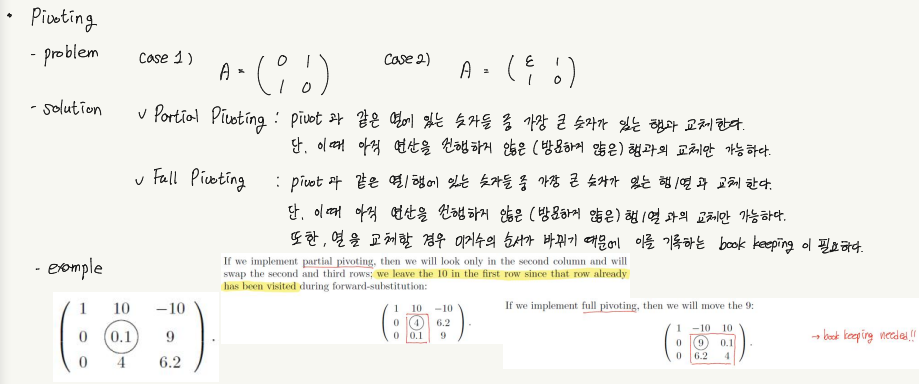 • Pivoting
- problem Case 1) A = ( 0 1 Case 2) A = ( ε 1
1 0 ) 1 0 )
- solution ∨ Partial Pivoting : pivot과 같은 열에 있는 숫자들 중 가장 큰 숫자가 있는 행과 교체한다.
단, 이때 아직 연산을 진행하지 않은 (방문하지 않은) 행과의 교체만 가능하다.
∨ Full Pivoting : pivot과 같은 열/행에 있는 숫자들 중 가장 큰 숫자가 있는 행/열과 교체한다.
단, 이때 아직 연산을 진행하지 않은 (방문하지 않은) 행/열과의 교체만 가능하다.
또한, 열을 교체할 경우 미지수의 순서가 바뀌기 때문에 이를 기록하는 book keeping이 필요하다.
- example
If we implement partial pivoting, then we will look only in the second column and will
swap the second and third rows; we leave the 10 in the first row since that row already
has been visited during forward-substitution:
1 10 −10
0 0.1 9
0 4 6.2
.
1 10 −10
0 4 6.2
0 0.1 9
.
If we implement full pivoting, then we will move the 9:
1 −10 10
0 9 0.1
0 6.2 4
.
→ book keeping needed!!